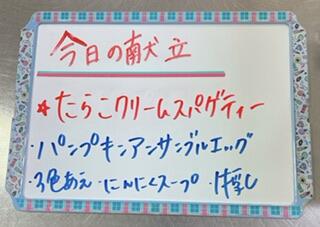 今日の献立
★たらこクリームスパゲティー
・パンプキンアンサンブルエッグ
・3色あえ・にんにくスープ・